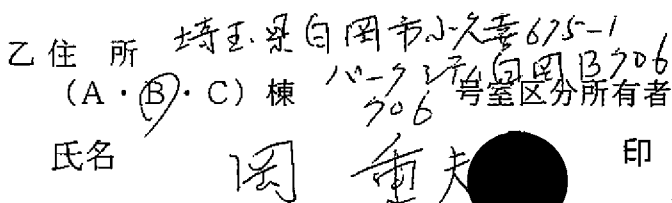 乙住所 埼玉県白岡市小久喜675-1
パークシティ白岡B706
(A・B・C)棟 706 号室区分所有者
氏名 岡 重夫 印